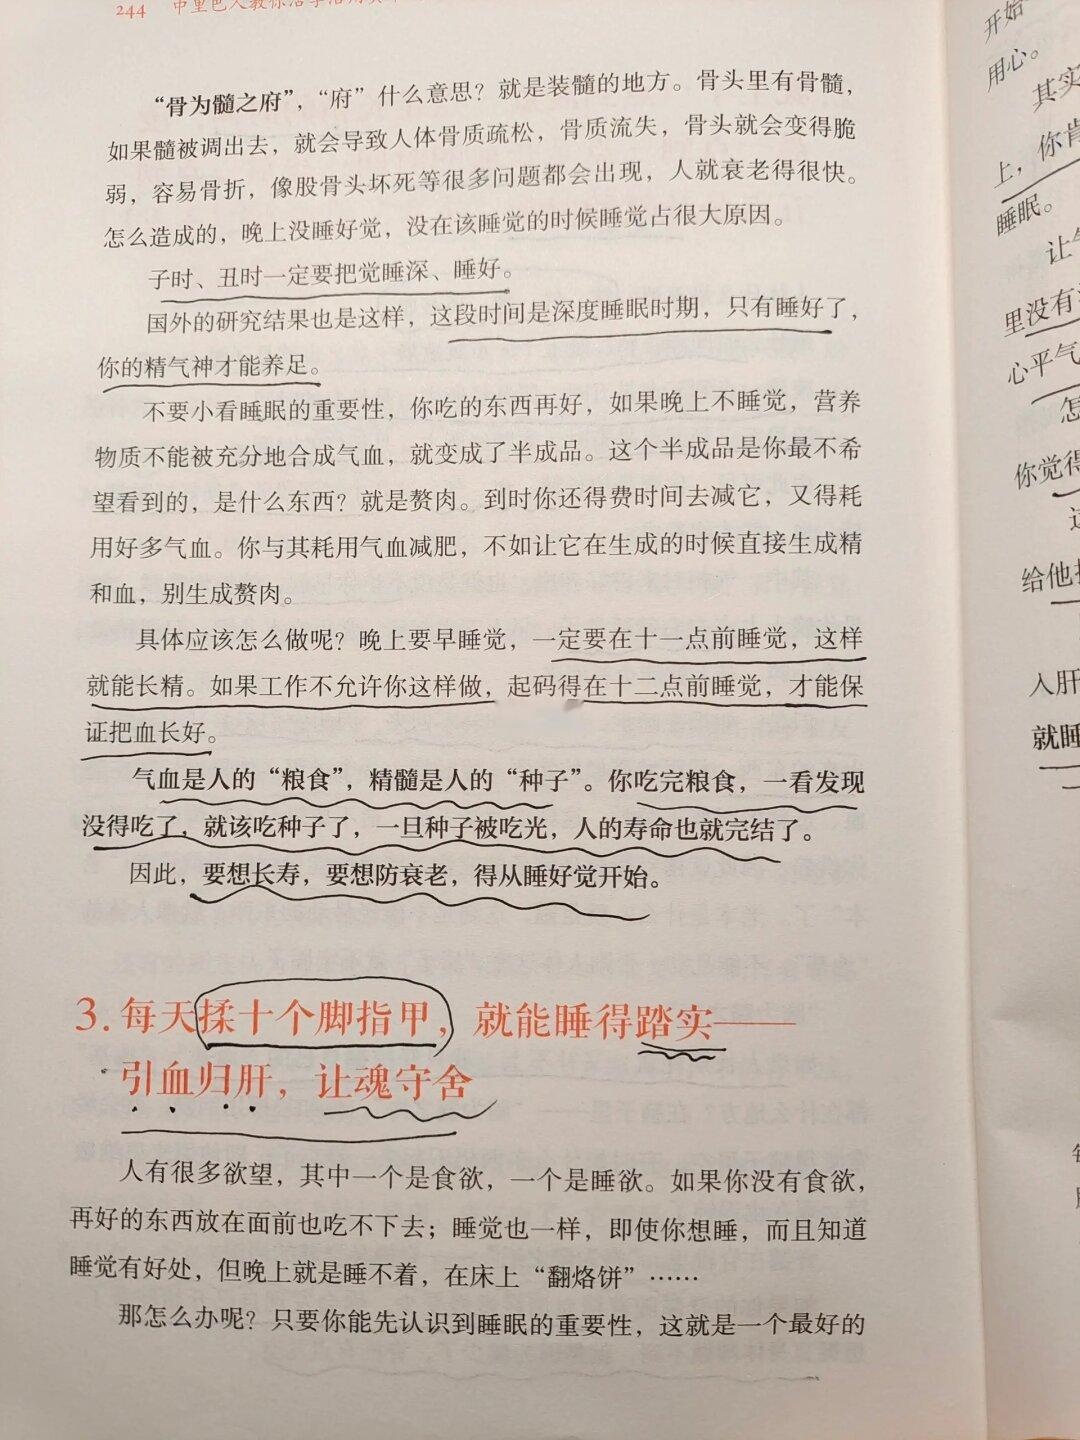 244 中里巴人教你活学活用黄
“骨为髓之府”，“府”什么意思？就是装髓的地方。骨头里有骨髓，
如果髓被调出去，就会导致人体骨质疏松，骨质流失，骨头就会变得脆
弱，容易骨折，像股骨头坏死等很多问题都会出现，人就衰老得很快。
怎么造成的，晚上没睡好觉，没在该睡觉的时候睡觉占很大原因。
子时、丑时一定要把觉睡深、睡好。
国外的研究结果也是这样，这段时间是深度睡眠时期，只有睡好了，
你的精气神才能养足。
不要小看睡眠的重要性，你吃的东西再好，如果晚上不睡觉，营养
物质不能被充分地合成气血，就变成了半成品。这个半成品是你最不希
望看到的，是什么东西？就是赘肉。到时你还得费时间去减它，又得耗
用好多气血。你与其耗用气血减肥，不如让它在生成的时候直接生成精
和血，别生成赘肉。
具体应该怎么做呢？晚上要早睡觉，一定要在十一点前睡觉，这样
就能长精。如果工作不允许你这样做，起码得在十二点前睡觉，才能保
证把血长好。
气血是人的“粮食”，精髓是人的“种子”。你吃完粮食，一看发现
没得吃了，就该吃种子了，一旦种子被吃光，人的寿命也就完结了。
因此，要想长寿，要想防衰老，得从睡好觉开始。
3. 每天揉十个脚指甲，就能睡得踏实——
引血归肝，让魂守舍
人有很多欲望，其中一个是食欲，一个是睡欲。如果你没有食欲，
再好的东西放在面前也吃不下去；睡觉也一样，即使你想睡，而且知道
睡觉有好处，但晚上就是睡不着，在床上“翻烙饼”……
那怎么办呢？只要你能先认识到睡眠的重要性，这就是一个最好的
开始
用心。
其实
上，你肯
睡眠。
让
里没有
心平气
怎
你觉得
给他
入肝
就睡